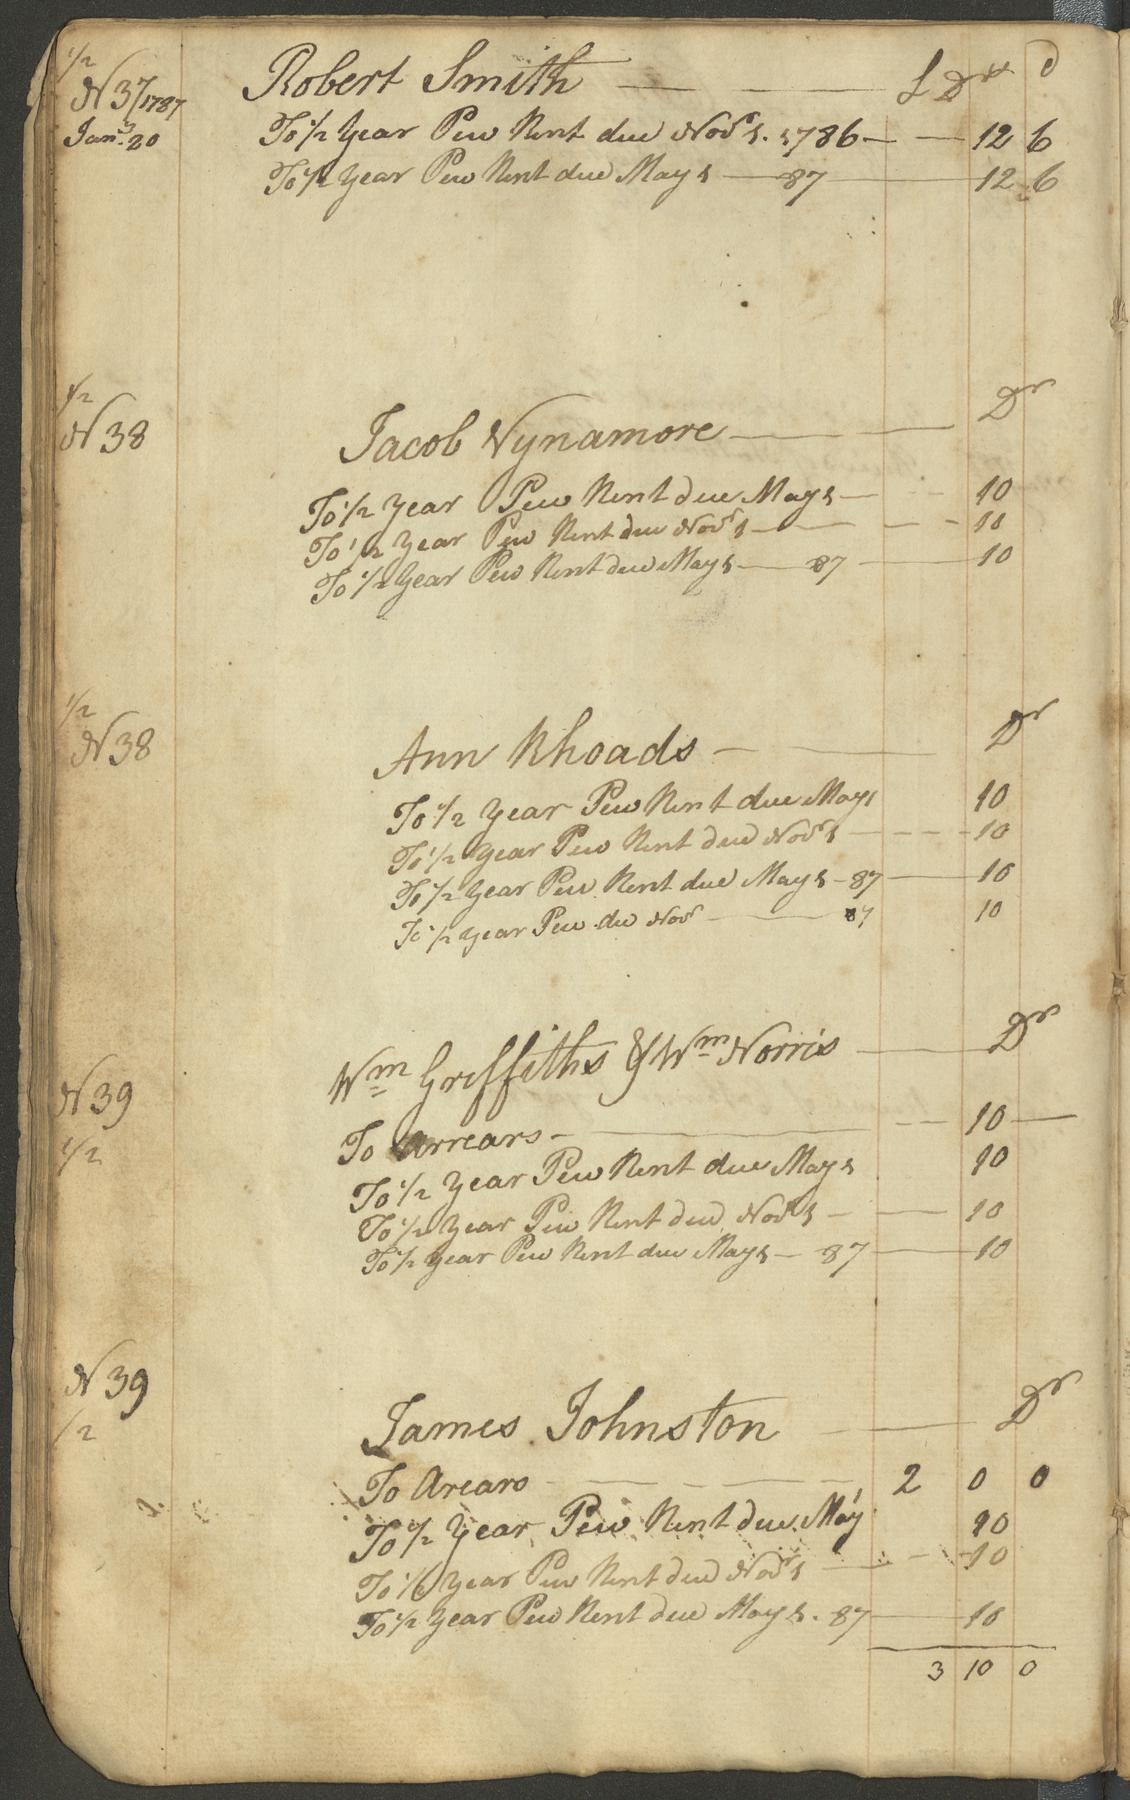 1/2
N 37/1787 Robert Smith £ Drs d
Jany. 20 To 1/2 Year Pew Rent due Novr 1. 1786 12 6
To 1/2 Year Pew Rent due May 1 87 12 6
1/2
N 38 Jacob Vynamore Dr
To 1/2 Year Pew Rent due May 1 10
To 1/2 Year Pew Rent due Novr 1 10
To 1/2 Year Pew Rent due May 1 87 10
1/2
N 38 Ann Rhoads Dr
To 1/2 Year Pew Rent due May 1 10
To 1/2 Year Pew Rent due Novr 1 10
To 1/2 Year Pew Rent due May 1 - 87 10
To 1/2 Year Pew due Novr 87 10
N 39 Wm Griffiths & Wm Norris Dr
1/2 To Arrears - 10 —
To 1/2 Year Pew Rent due May 1 10
To 1/2 Year Pew Rent due Novr 1 10
To 1/2 Year Pew Rent due May 1 - 87 10
N 39
1/2 James Johnston Dr
To Arears 2 0 0
To 1/2 Year Pew Rent due May 1 10
To 1/2 Year Pew Rent due Novr 1 10
To 1/2 Year Pew Rent due May 1. 87 10
3 10 0